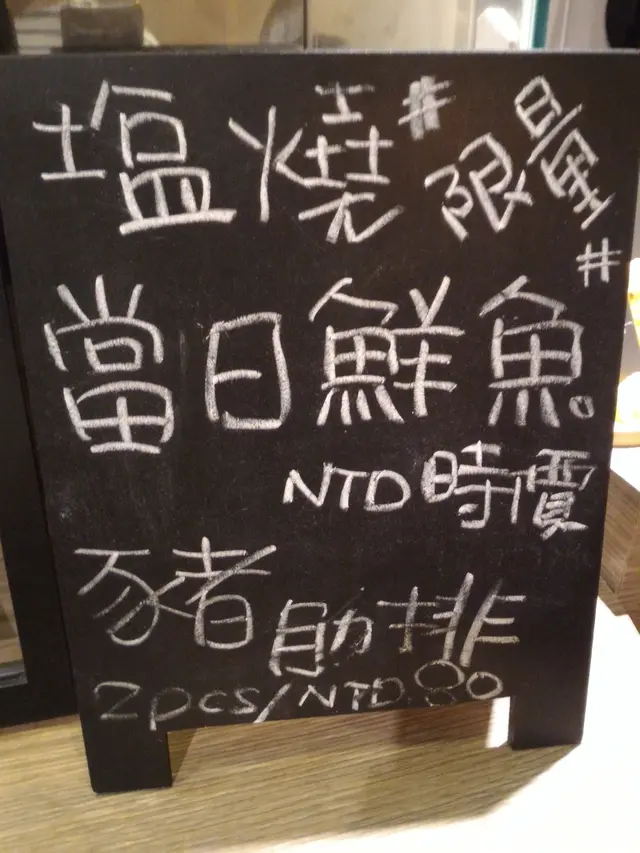 塩燒 #限量#
當日鮮魚。
NTD時價
豬助排
2pcs/NTD.80